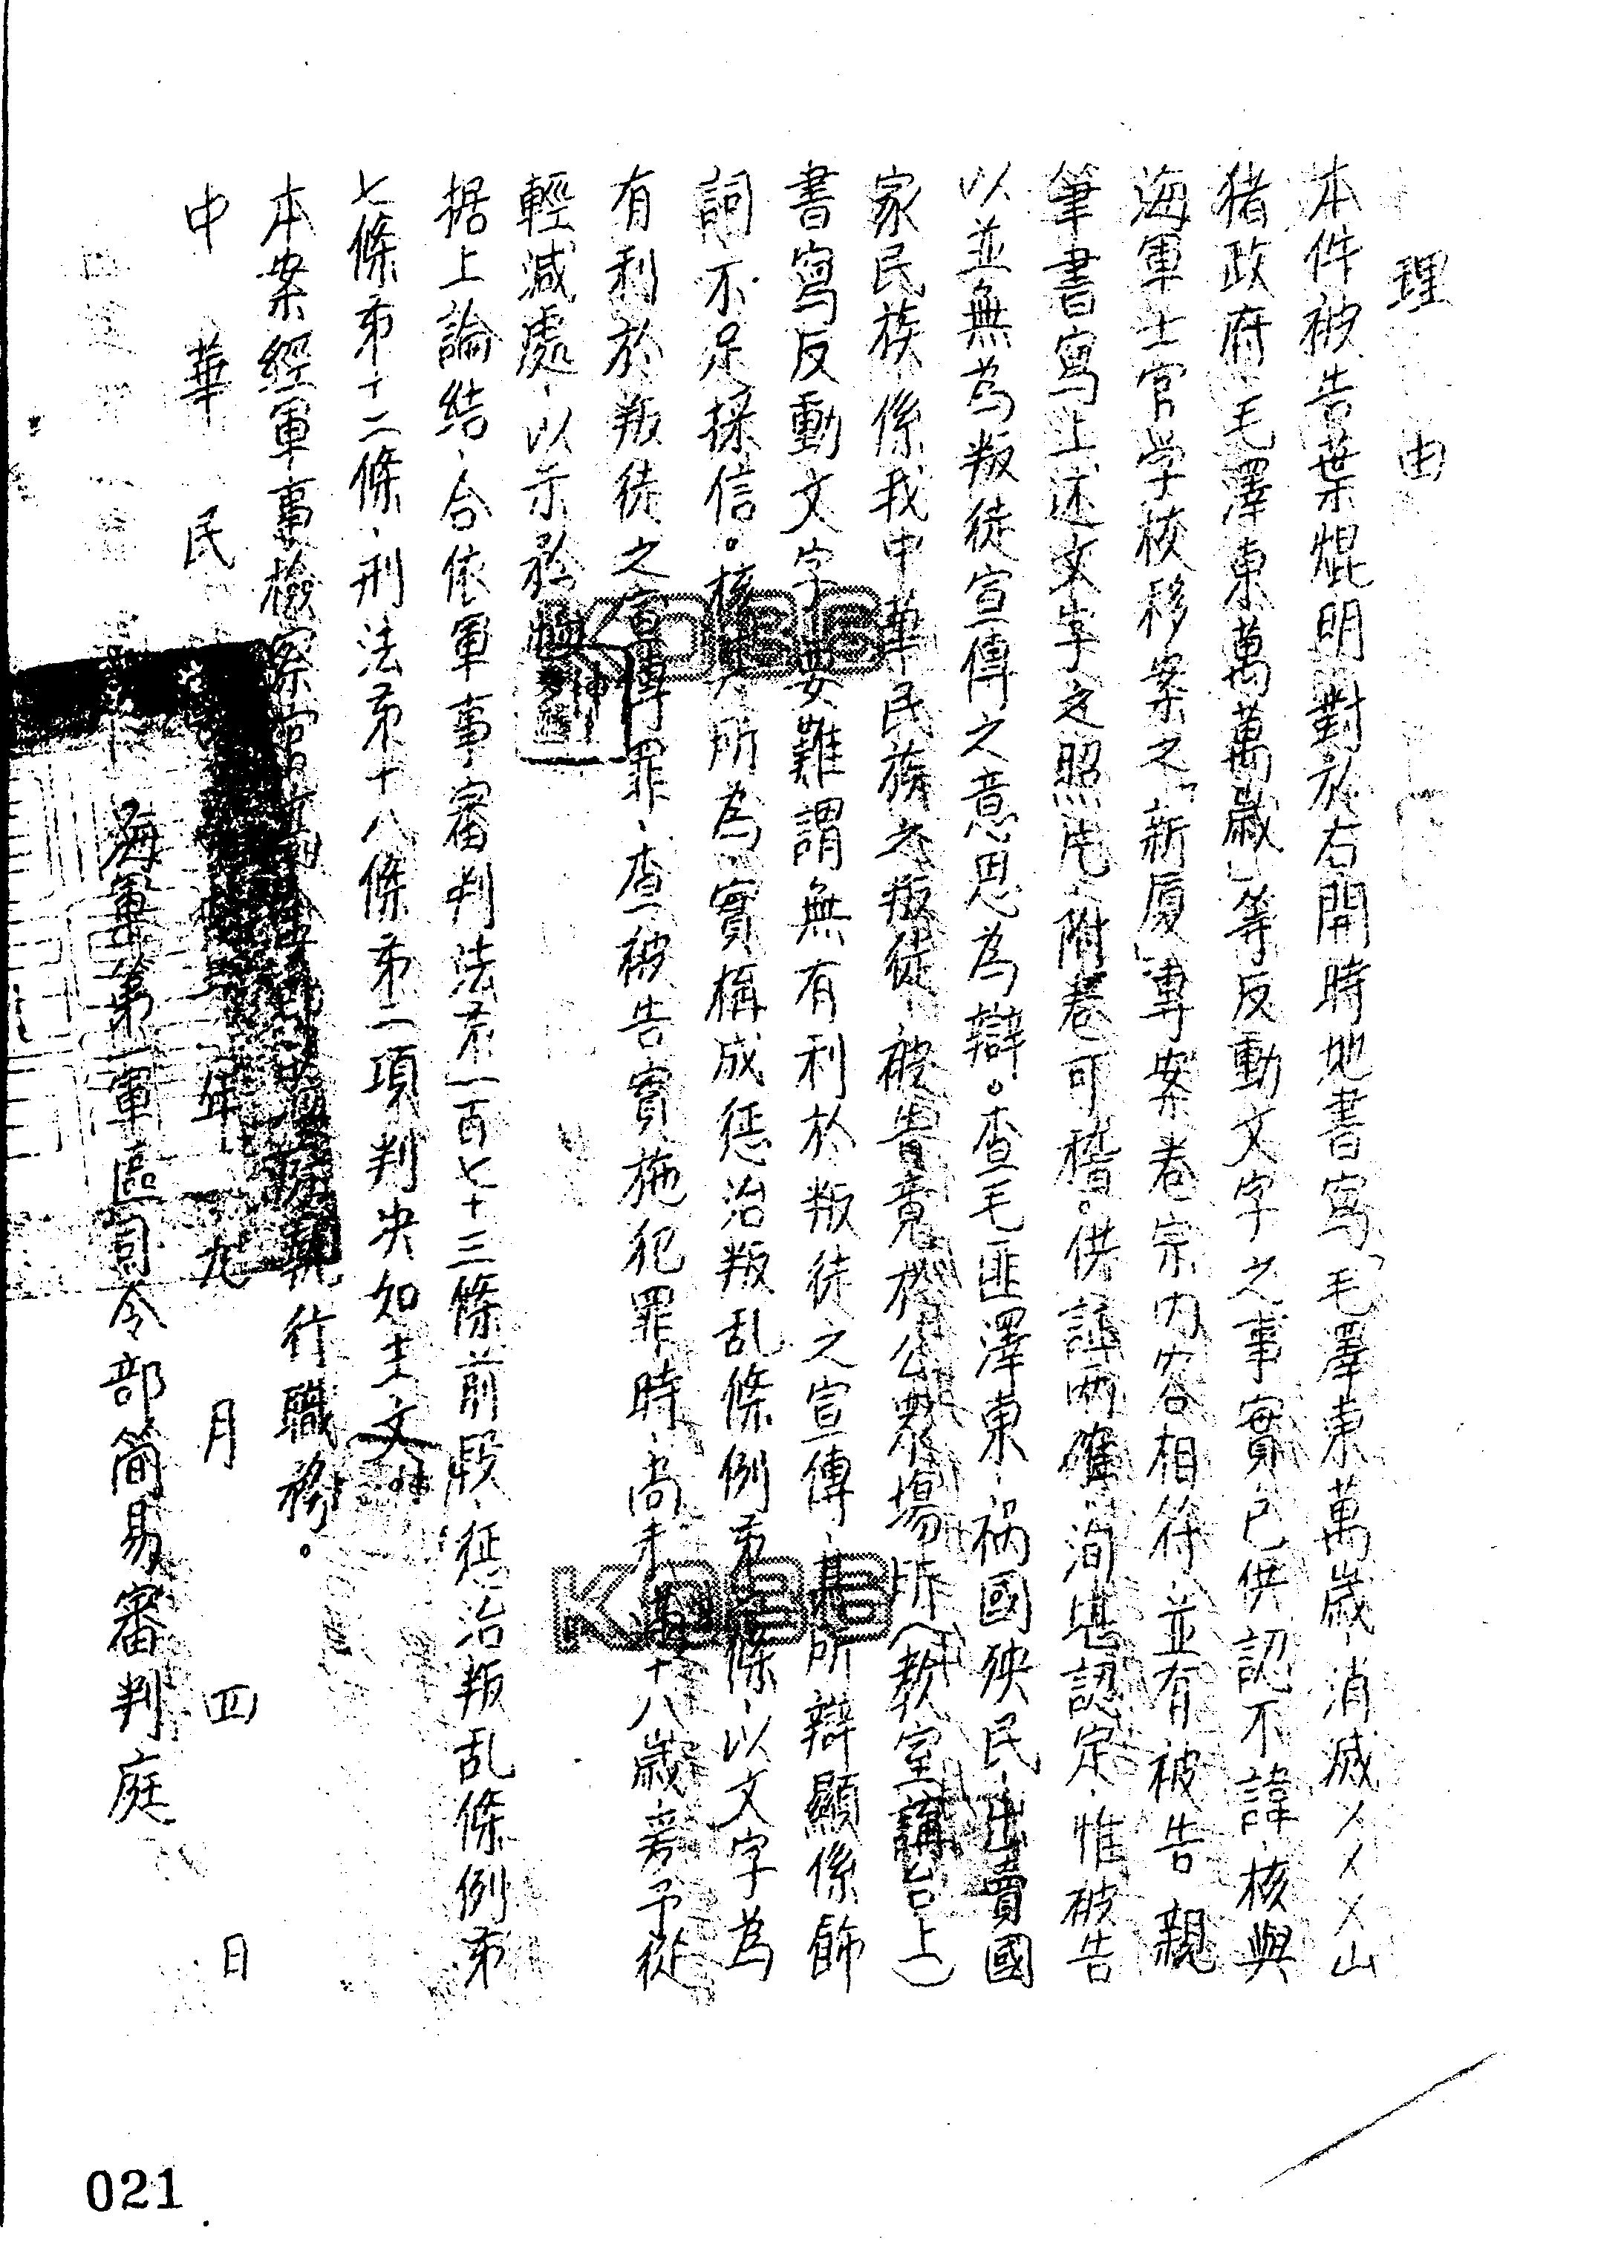 理由
本件被告葉焜明對於右開時地書寫「毛澤東萬歲、消滅ㄨㄨㄨ山
猪政府、毛澤東萬萬萬歲」等反動文字之事實已供認不諱、核與
海軍士官学校移案之「新厦」專案卷宗內容相符、並有被告親
筆書寫上述文字之照片附卷可稽。供証兩確洵堪認定、惟被告
以並無為叛徒宣傳之意思為辯。查毛匪澤東、禍國殃民、出賣國
家民族、係我中華民族之叛徒、被告竟於公眾場所(教室講台上)
書寫反動文字要難謂無有利於叛徒之宣傳、其所辯顯係飾
詞、不足採信。核其所為、實構成惩治叛乱條例第七條、以文字為
有利於叛徒之宣傳罪、查被告實施犯罪時、尚未滿十八歲爰予從
輕減處、以示矜恤
据上論結、合依軍事審判法第一百七十三條前段、惩治叛乱條例第
七條第十二條、刑法第十八條第二項判決如主文。
本案經軍事檢察官執行職務。
中華民年九月四日
海軍第一軍區司令部簡易審判庭
KDBB
KDBB
021